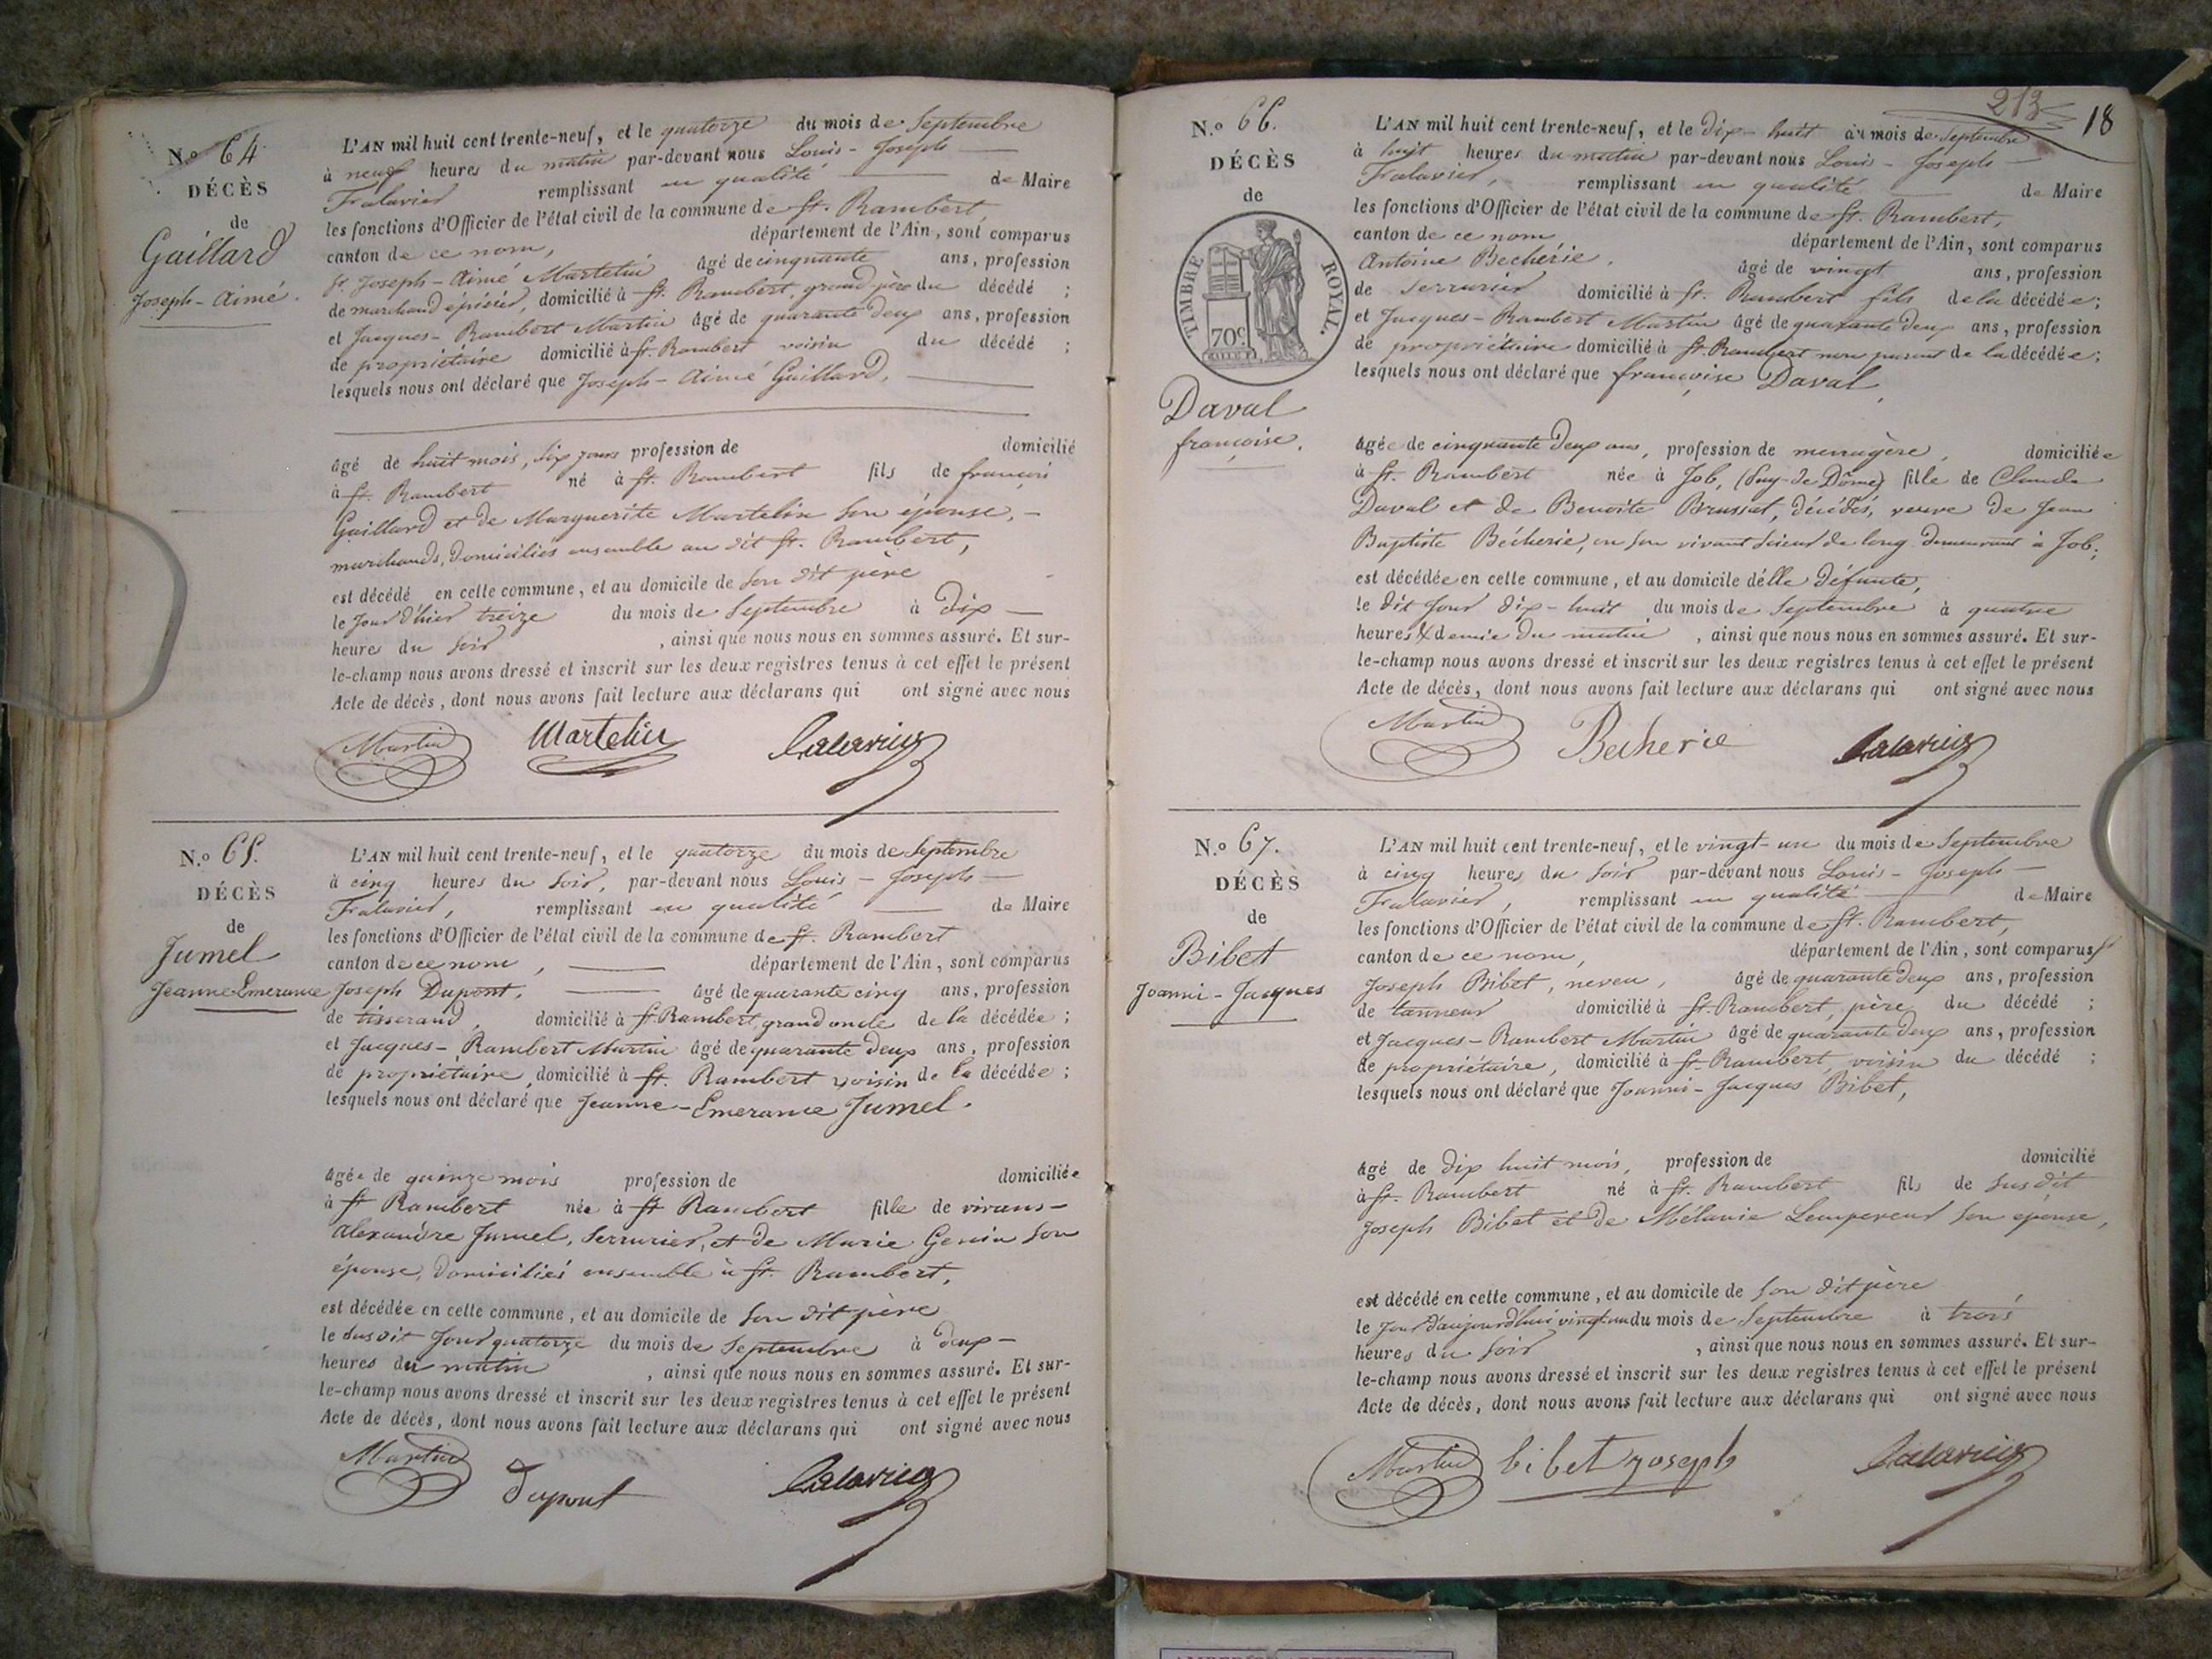 N.o 64
DÉCÈS
de
Gaillard
Joseph-Aimé.
L'AN mil huit cent trente-neuf, et le quatorze du mois de Septembre
à neuf heures du matin par-devant nous Louis-Joseph
Falavier remplissant en qualité de Maire
les fonctions d'Officier de l'état civil de la commune de St. Rambert,
canton de ce nom, département de l'Ain, sont comparus
Sr. Joseph-Aimé Martelin âgé de cinquante ans, profession
de marchand épicier, domicilié à St. Rambert, grand père du décédé ;
et Jacques-Rambert Martin âgé de quarante deux ans, profession
de propriétaire domicilié à St. Rambert voisin du décédé ;
lesquels nous ont déclaré que Joseph-Aimé Gaillard,
âgé de huit mois, dix jours profession de domicilié
à St. Rambert né à St. Rambert fils de françois
Gaillard et de Marguerite Martelin son épouse,
marchands, domiciliés ensemble au dit St. Rambert,
est décédé en cette commune, et au domicile de son dit père
le jour d'hier treize du mois de Septembre à dix
heures du soir , ainsi que nous nous en sommes assuré. Et sur-
le-champ nous avons dressé et inscrit sur les deux registres tenus à cet effet le présent
Acte de décès, dont nous avons fait lecture aux déclarans qui ont signé avec nous
Martin Martelin Falavier
N.o 65.
DÉCÈS
de
Jumel
Jeanne Emerance
L'AN mil huit cent trente-neuf, et le quatorze du mois de Septembre
à cinq heures du soir, par-devant nous Louis-Joseph
Falavier, remplissant en qualité de Maire
les fonctions d'Officier de l'état civil de la commune de St. Rambert
canton de ce nom, département de l'Ain, sont comparus
Joseph Dupont, âgé de quarante cinq ans, profession
de tisserand, domicilié à St. Rambert, grand oncle de la décédée ;
et Jacques-Rambert Martin âgé de quarante deux ans, profession
de propriétaire, domicilié à St. Rambert voisin de la décédée ;
lesquels nous ont déclaré que Jeanne-Emerance Jumel.
âgée de quinze mois profession de domiciliée
à St Rambert née à St Rambert fille de vivans
Alexandre Jumel, serrurier, et de Marie Genin son
épouse, domiciliés ensemble à St. Rambert,
est décédée en cette commune, et au domicile de son dit père
le susdit jour quatorze du mois de Septembre à deux
heures du matin , ainsi que nous nous en sommes assuré. Et sur-
le-champ nous avons dressé et inscrit sur les deux registres tenus à cet effet le présent
Acte de décès, dont nous avons fait lecture aux déclarans qui ont signé avec nous
Martin Dupont Falavier
213
18
N.o 66.
DÉCÈS
de
TIMBRE ROYAL.
70c
Daval
françoise.
L'AN mil huit cent trente-neuf, et le dix-huit du mois de Septembre
à huit heures du matin par-devant nous Louis-Joseph
Falavier, remplissant en qualité de Maire
les fonctions d'Officier de l'état civil de la commune de St. Rambert,
canton de ce nom département de l'Ain, sont comparus
Antoine Becherie. âgé de vingt ans, profession
de Serrurier domicilié à St. Rambert fils de la décédée ;
et Jacques-Rambert Martin âgé de quarante deux ans, profession
de propriétaire domicilié à St. Rambert non parent de la décédée ;
lesquels nous ont déclaré que françoise Daval,
âgée de cinquante deux ans, profession de menagère, domiciliée
à St. Rambert née à Job, (Puy-de-Dôme) fille de Claude
Daval et de Benoîte Brussat, décédés, veuve de Jean
Baptiste Bécherie, en son vivant scieur de long demeurant à Job ;
est décédée en cette commune, et au domicile d'elle défunte,
le dit jour dix-huit du mois de Septembre à quatre
heures & demie du matin , ainsi que nous nous en sommes assuré. Et sur-
le-champ nous avons dressé et inscrit sur les deux registres tenus à cet effet le présent
Acte de décès, dont nous avons fait lecture aux déclarans qui ont signé avec nous
Martin Becherie Falavier
N.o 67.
DÉCÈS
de
Bibet
Joanni-Jacques
L'AN mil huit cent trente-neuf, et le vingt-un du mois de Septembre
à cinq heures du soir par-devant nous Louis-Joseph
Falavier, remplissant en qualité de Maire
les fonctions d'Officier de l'état civil de la commune de St. Rambert,
canton de ce nom, département de l'Ain, sont comparus Sr
Joseph Bibet, neveu, âgé de quarante deux ans, profession
de tanneur domicilié à St. Rambert, père du décédé ;
et Jacques-Rambert Martin âgé de quarante deux ans, profession
de propriétaire, domicilié à St. Rambert, voisin du décédé ;
lesquels nous ont déclaré que Joanni-Jacques Bibet,
âgé de dix huit mois, profession de domicilié
à St. Rambert né à St. Rambert fils de susdit
Joseph Bibet et de Mélanie Lempereur son épouse,
est décédé en cette commune, et au domicile de son dit père
le jour d'aujourd'hui vingt un du mois de Septembre à trois
heures du soir , ainsi que nous nous en sommes assuré. Et sur-
le-champ nous avons dressé et inscrit sur les deux registres tenus à cet effet le présent
Acte de décès, dont nous avons fait lecture aux déclarans qui ont signé avec nous
Martin bibet joseph Falavier